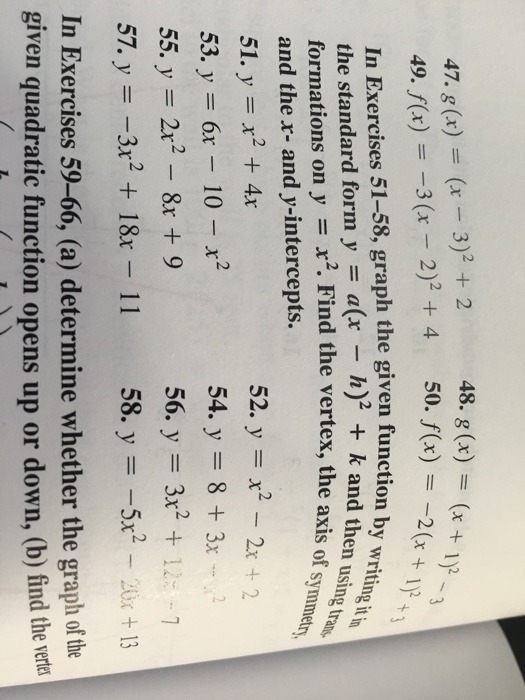 47. g(x) = (x − 3)² + 2 48. g(x) = (x + 1)² − 3
49. f(x) = −3(x − 2)² + 4 50. f(x) = −2(x + 1)² + 3
In Exercises 51–58, graph the given function by writing it in
the standard form y = a(x − h)² + k and then using trans
formations on y = x². Find the vertex, the axis of symmetry,
and the x- and y-intercepts.
51. y = x² + 4x 52. y = x² − 2x + 2
53. y = 6x − 10 − x² 54. y = 8 + 3x − x²
55. y = 2x² − 8x + 9 56. y = 3x² + 12x − 7
57. y = −3x² + 18x − 11 58. y = −5x² − 20x + 13
In Exercises 59–66, (a) determine whether the graph of the
given quadratic function opens up or down, (b) find the vertex